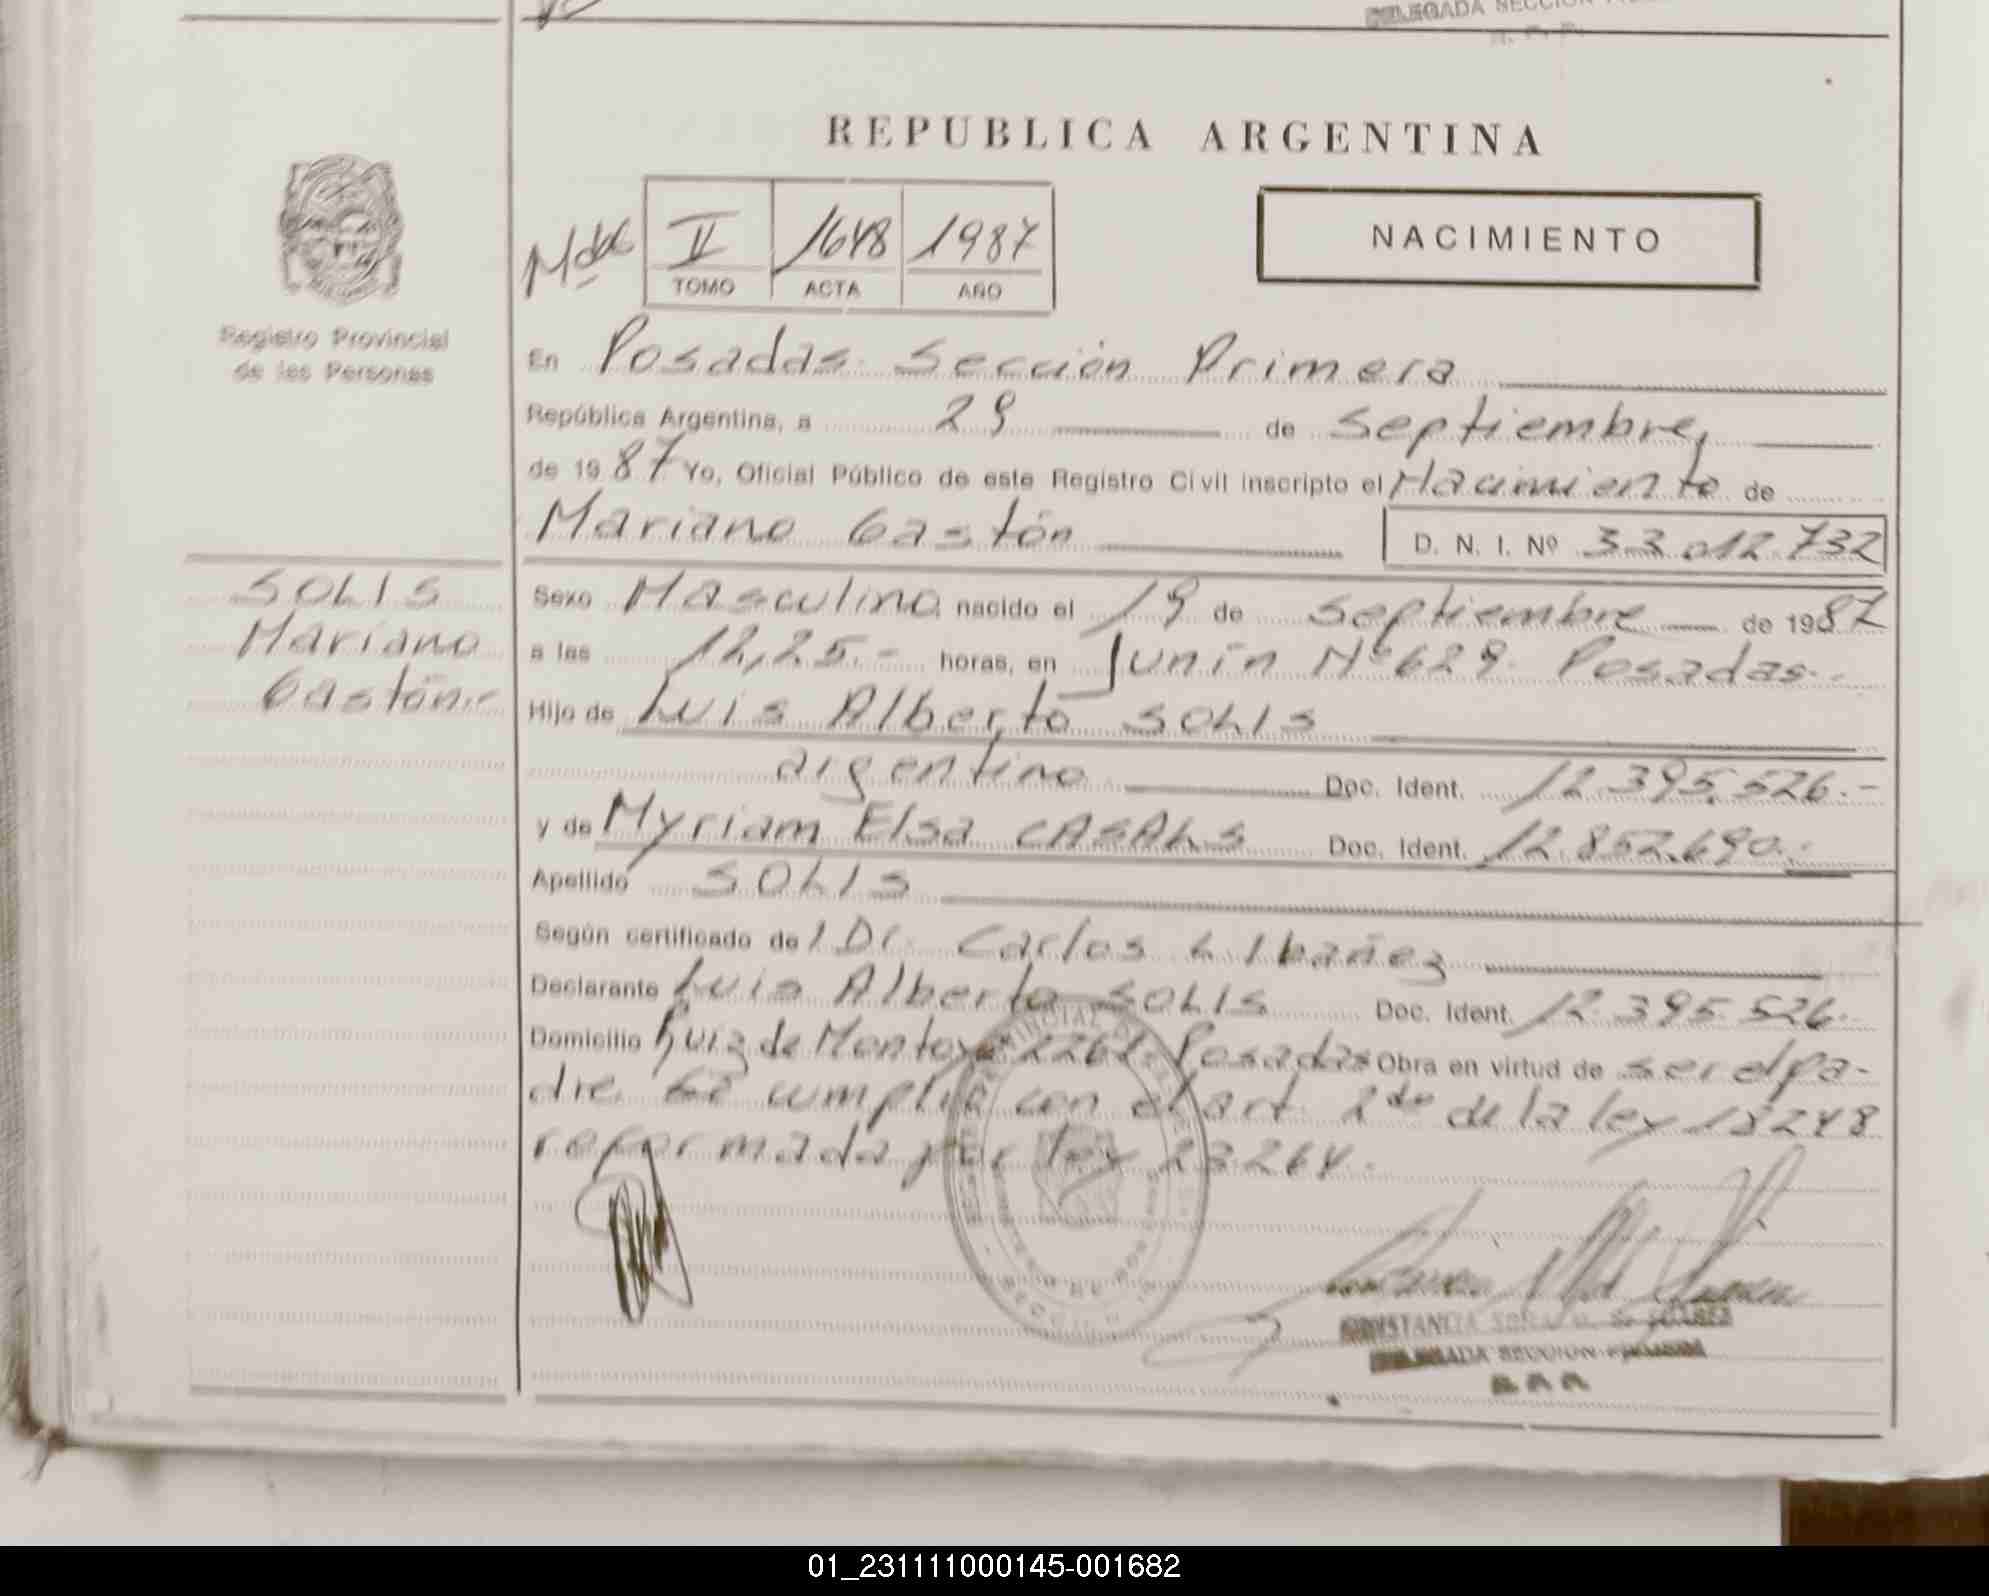 DELEGADA SECCION
R. P. P.
REPUBLICA ARGENTINA
II 1648 1987
TOMO ACTA AÑO
NACIMIENTO
Registro Provincial
de las Personas
En Posadas Sección Primera
República Argentina, a 29 de Septiembre,
de 1987 Yo, Oficial Público de este Registro Civil inscripto el Nacimiento de
Mariano Gastón D. N. I. Nº 33.012.732
SOLIS
Mariano
Gastón.-
Sexo Masculino, nacido el 19 de Septiembre de 1987
a las 12,25.- horas, en Junín Nº 629. Posadas.-
Hijo de Luis Alberto SOLIS
argentino Doc. Ident. 12.395.526.-
y de Myriam Elsa CASALS Doc. Ident. 12.852.690.-
Apellido SOLIS
Según certificado del Dr. Carlos L Ibañez
Declarante Luis Alberto SOLIS Doc. Ident. 12.395.526.
Domicilio Ruiz de Montoya 2262. Posadas Obra en virtud de ser el pa-
dre. Se cumplió con el art. 2do de la ley 18248
reformada por ley 23264.
DELEGADA SECCION PRIMERA
R. P. P.
01_231111000145-001682